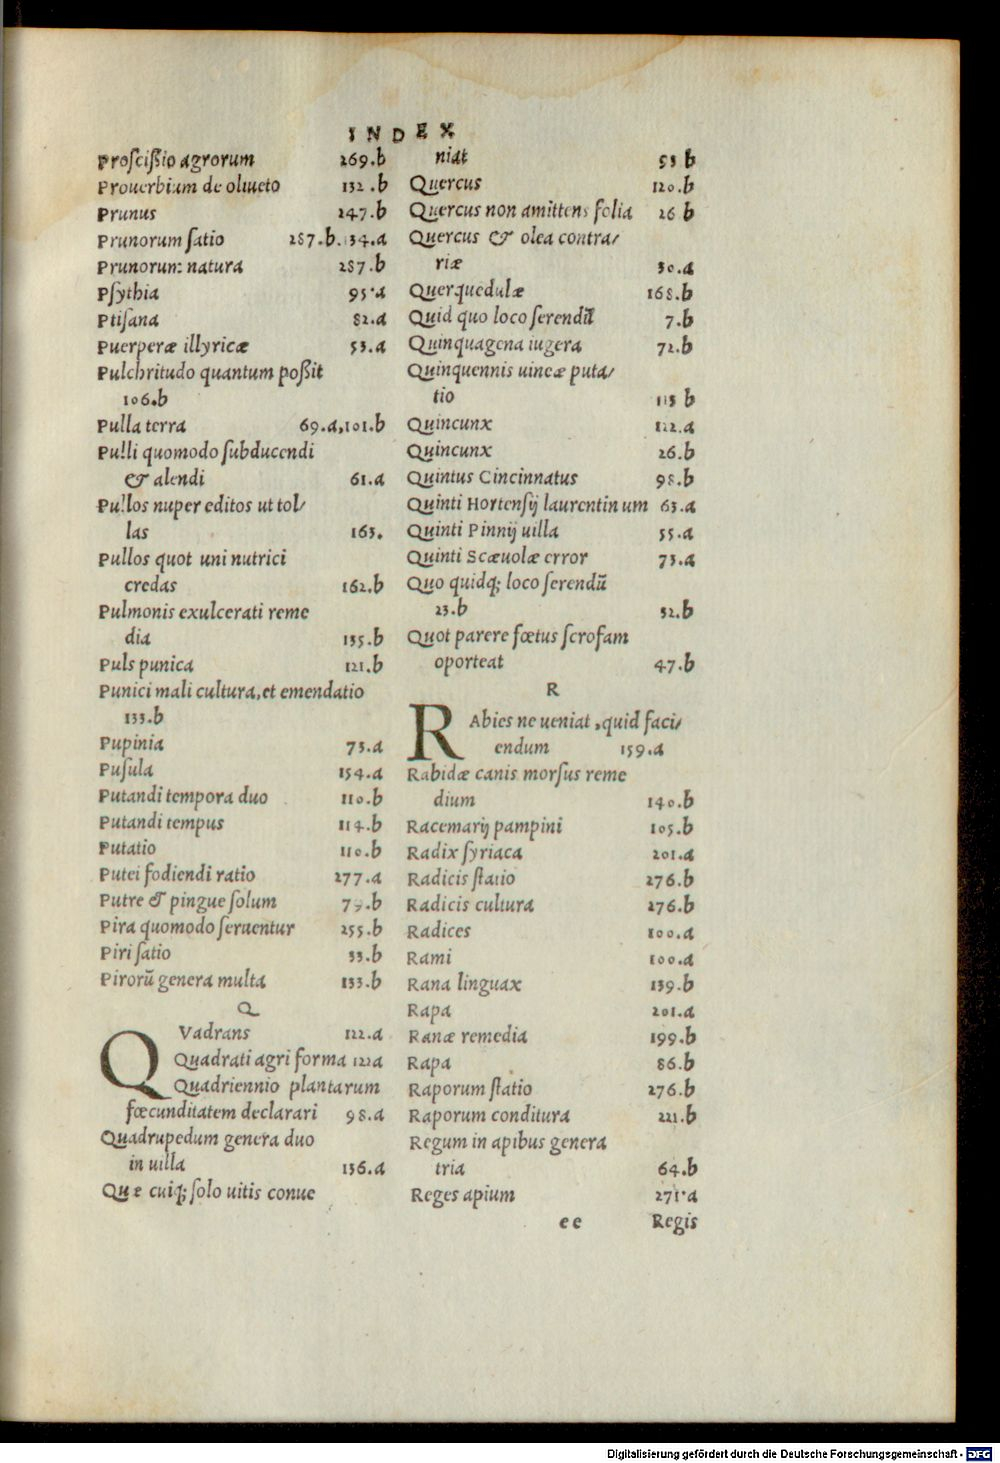 INDEX
Proſciſſio agrorum 269.b
Prouerbium de oliueto 132.b
Prunus 247.b
Prunorum ſatio 287.b.134.a
Prunorum natura 287.b
Pſythia 95.a
Ptiſana 82.a
Puerperæ illyricæ 53.a
Pulchritudo quantum poſſit
106.b
Pulla terra 69.a,101.b
Pulli quomodo ſubducendi
& alendi 61.a
Pullos nuper editos ut tol/
las 163.
Pullos quot uni nutrici
credas 162.b
Pulmonis exulcerati reme
dia 135.b
Puls punica 121.b
Punici mali cultura,et emendatio
133.b
Pupinia 73.a
Puſula 154.a
Putandi tempora duo 110.b
Putandi tempus 114.b
Putatio 110.b
Putei fodiendi ratio 277.a
Putre & pingue ſolum 79.b
Pira quomodo ſeruentur 255.b
Piri ſatio 33.b
Pirorū genera multa 133.b
Q
QVadrans 122.a
Quadrati agri forma 122a
Quadriennio plantarum
fœcunditatem declarari 98.a
Quadrupedum genera duo
in uilla 136.a
Quæ cuiq; ſolo uitis conue
niat 53 b
Quercus 120.b
Quercus non amittens folia 26 b
Quercus & olea contra/
riæ 30.a
Querquedulæ 168.b
Quid quo loco ſerendū 7.b
Quinquagena iugera 72.b
Quinquennis uineæ puta/
tio 113 b
Quincunx 122.a
Quincunx 26.b
Quintus Cincinnatus 98.b
Quinti Hortenſij laurentinum 63.a
Quinti Pinnij uilla 55.a
Quinti Scæuolæ error 73.a
Quo quidq; loco ſerendū
23.b 32.b
Quot parere fœtus ſcrofam
oporteat 47.b
R
RAbies ne ueniat,quid faci/
endum 159.a
Rabidæ canis morſus reme
dium 140.b
Racemarij pampini 105.b
Radix ſyriaca 201.a
Radicis ſtatio 276.b
Radicis cultura 276.b
Radices 100.a
Rami 100.a
Rana linguax 139.b
Rapa 201.a
Ranæ remedia 199.b
Rapa 86.b
Raporum ſtatio 276.b
Raporum conditura 221.b
Regum in apibus genera
tria 64.b
Reges apium 271.a
ee Regis
Digitalisierung gefördert durch die Deutsche Forschungsgemeinschaft - DFG